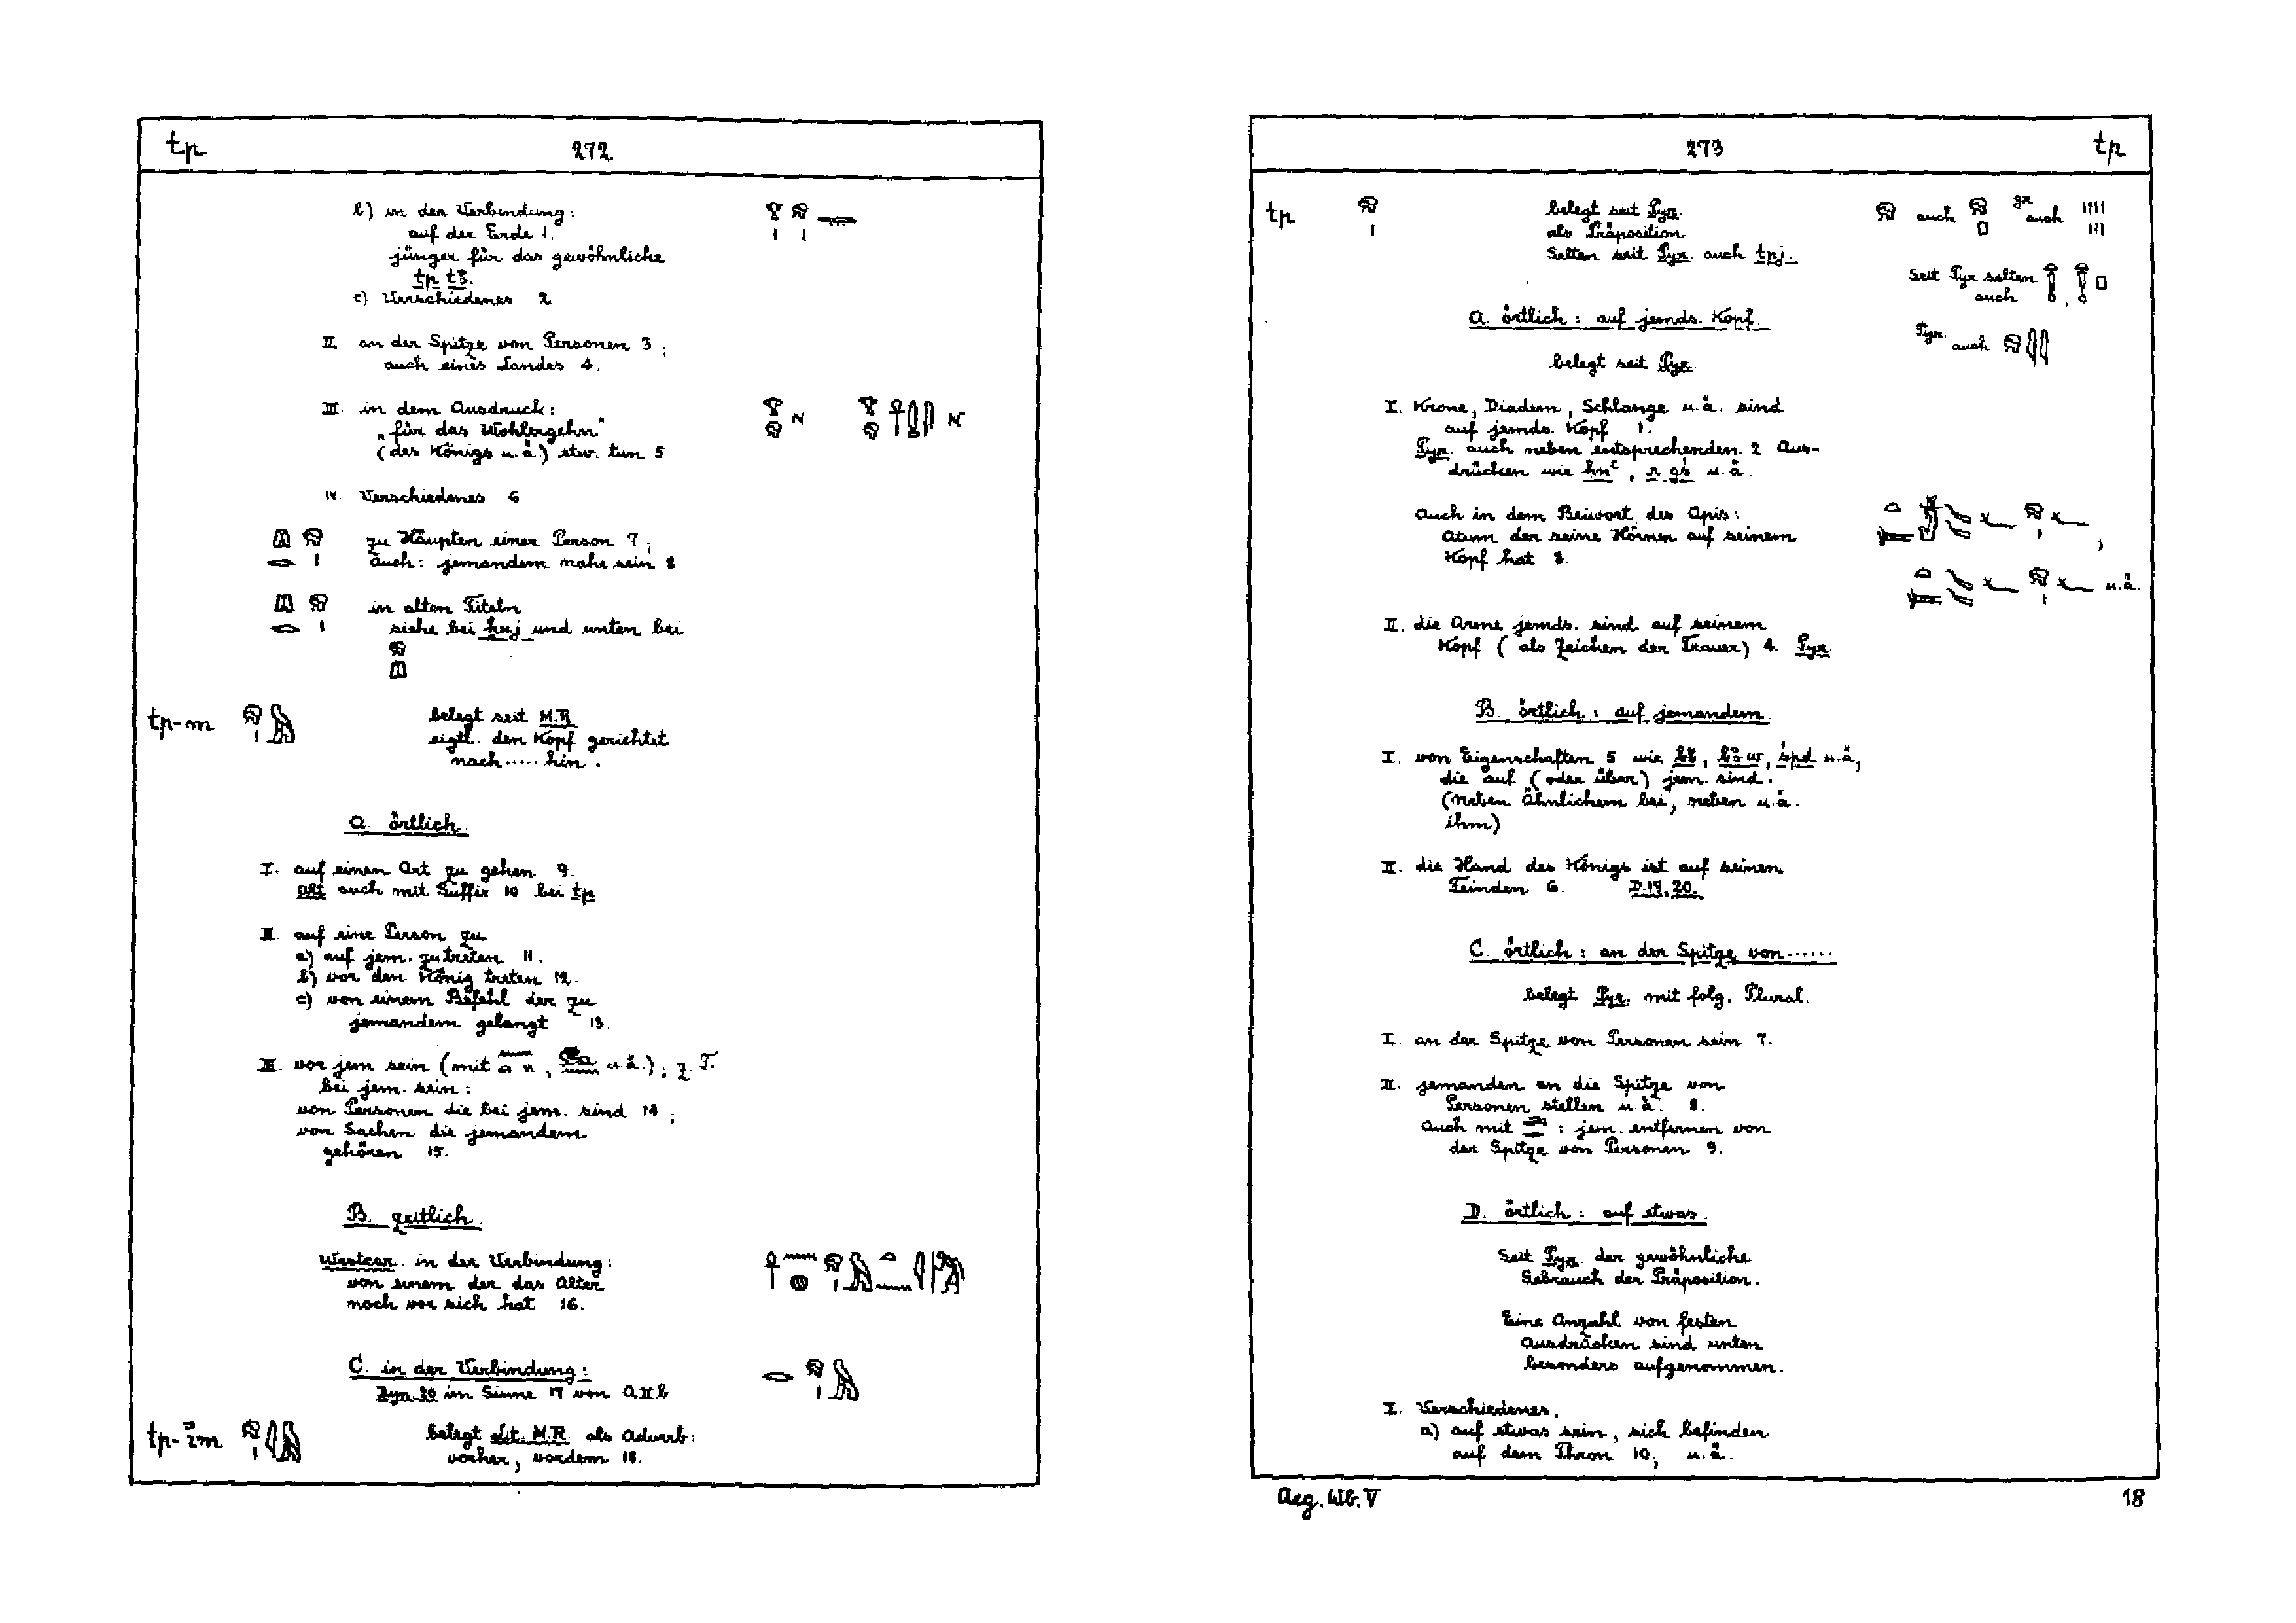 tp 272
b) in der Verbindung:
auf der Erde 1.
jünger für das gewöhnliche
tp tꜣ.
c) Verschiedenes 2
II an der Spitze von Personen 3;
auch eines Landes 4.
III. in dem Ausdruck:
„für das Wohlergehn"
(des Königs u.ä.) etw. tun 5
IV. Verschiedenes 6
zu Häupten einer Person 7;
auch: jemandem nahe sein 8
in alten Titeln
siehe bei ẖrj und unten bei
tp-m belegt seit M.R.
eigtl. den Kopf gerichtet
nach ..... hin.
A. örtlich.
I. auf einen Ort zu gehen 9.
Alt auch mit Suffix 10 bei tp
II. auf eine Person zu
a) auf jem. zutreten 11.
b) vor den König treten 12.
c) von einem Befehl der zu
jemandem gelangt 13.
III. vor jem sein (mit , u.ä.); z.T.
bei jem. sein:
von Personen die bei jem. sind 14;
von Sachen die jemandem
gehören 15.
B. zeitlich.
Westcar. in der Verbindung:
von einem der das Alter
noch vor sich hat 16.
C. in der Verbindung:
Dyn. 20 im Sinne 17 von A II b
tp-im belegt seit M.R. als Adverb:
vorher, vordem 18.
273 tp
tp belegt seit Pyr.
als Präposition
Selten seit Pyr. auch tpj.
auch gr auch
Seit Pyr selten
auch ,
Pyr. auch
A. örtlich: auf jemds. Kopf.
belegt seit Pyr.
I. Krone, Diadem, Schlange u.ä. sind
auf jemds. Kopf 1.
Pyr. auch neben entsprechenden 2 Aus-
drücken wie ḥnꜥ, r gś u.ä.
Auch in dem Beiwort des Apis:
Atum der seine Hörner auf seinem
Kopf hat 3.
, u.ä.
II. die Arme jemds. sind auf seinem
Kopf (als Zeichen der Trauer) 4. Pyr.
B. örtlich: auf jemandem.
I. von Eigenschaften 5 wie bꜣ, bꜣw, śpd u.ä.,
die auf (oder über) jem. sind.
(neben Ähnlichem bei, neben u.ä.
ihm)
II. die Hand des Königs ist auf seinen
Feinden 6. D.19.20.
C. örtlich: an der Spitze von ......
belegt Pyr. mit folg. Plural.
I. an der Spitze von Personen sein 7.
II. jemanden an die Spitze von
Personen stellen u.ä. 8.
Auch mit : jem. entfernen von
der Spitze von Personen 9.
D. örtlich: auf etwas.
Seit Pyr. der gewöhnliche
Gebrauch der Präposition.
Eine Anzahl von festen
Ausdrücken sind unten
besonders aufgenommen.
I. Verschiedenes.
a) auf etwas sein, sich befinden
auf dem Thron 10; u.ä.
Aeg. Wb. V 18